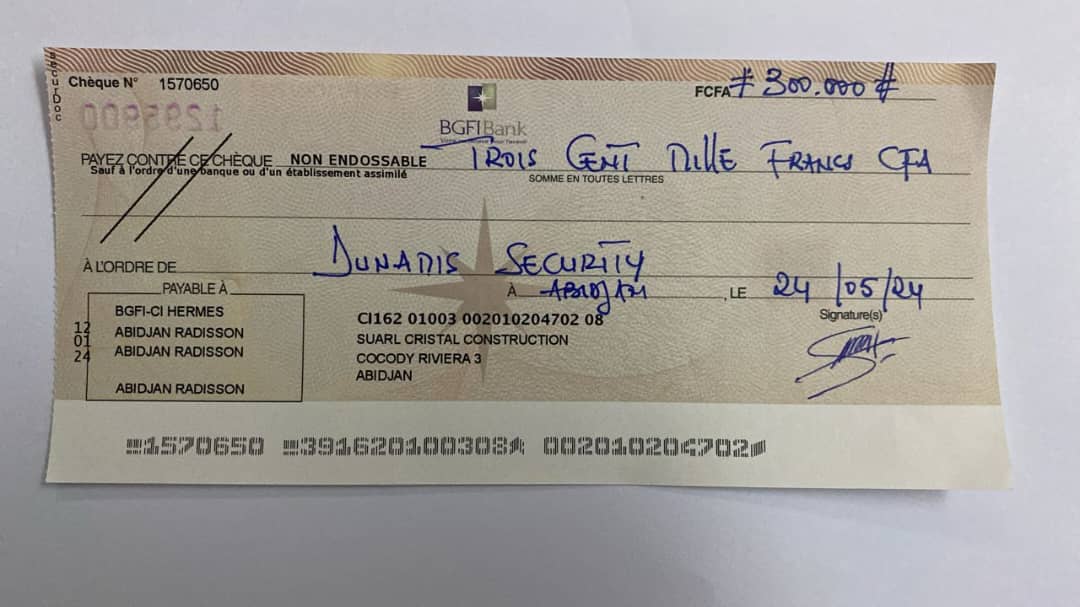 SecurDoc
Chèque N° 1570650
FCFA # 300.000 #
BGFIBank
PAYEZ CONTRE CE CHÈQUE NON ENDOSSABLE TROIS CENT MILLE FRANCS CFA
Sauf à l'ordre d'une banque ou d'un établissement assimilé
SOMME EN TOUTES LETTRES
À L'ORDRE DE DUNAMIS SECURITY
À ABIDJAN , LE 24/05/24
PAYABLE À
Signature(s)
BGFI-CI HERMES
ABIDJAN RADISSON
ABIDJAN RADISSON
ABIDJAN RADISSON
12
01
24
CI162 01003 002010204702 08
SUARL CRISTAL CONSTRUCTION
COCODY RIVIERA 3
ABIDJAN
1570650 391620100308 002010204702